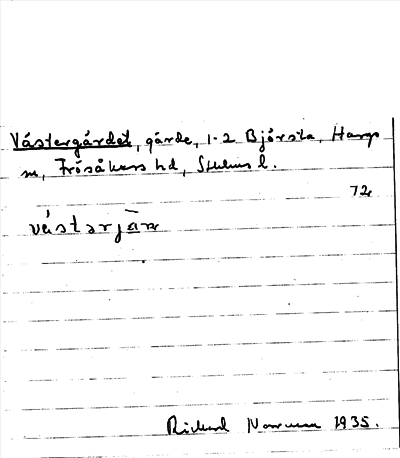 Västergärdet, gärde, 1-2 Björsta, Hargs
sn, Frösåkers hd, Sthlms l.
72
västərjär
Rickard 1935.